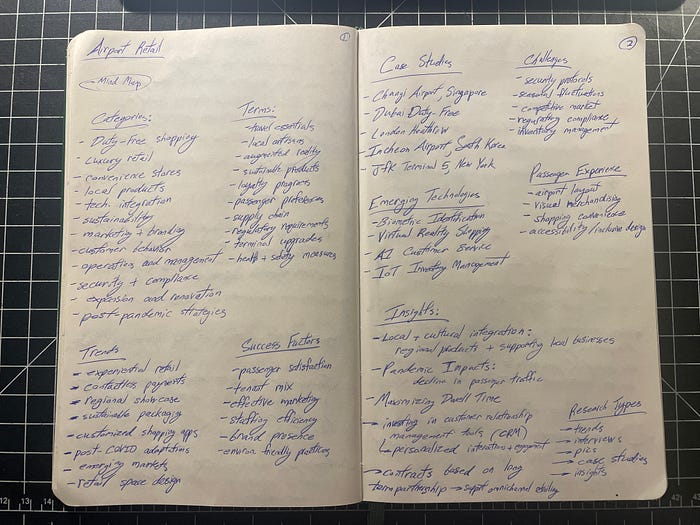 Airport Retail
1
- Mind Map
Categories:
- Duty-Free shopping
- Luxury retail
- convenience stores
- local products
- tech. integration
- sustainability
- marketing + branding
- customer behavior
- operations and management
- security + compliance
- expansion and renovation
- post-pandemic strategies
Terms:
- travel essentials
- local artisans
- augmented reality
- sustainable products
- loyalty programs
- passenger preferences
- supply chain
- regulatory requirements
- terminal upgrades
- health + safety measures
Trends
- experiential retail
- contactless payments
- regional showcase
- sustainable packaging
- customized shopping apps
- post-COVID adaptations
- emerging markets
- retail space design
Success Factors
- passenger satisfaction
- tenant mix
- effective marketing
- staffing efficiency
- brand presence
- environ. friendly practices
2
Case Studies
- Changi Airport, Singapore
- Dubai Duty-Free
- London Heathrow
- Incheon Airport South Korea
- JFK Terminal 5, New York
Challenges
- security protocols
- seasonal fluctuations
- competitive market
- regulatory compliance
- inventory management
Emerging Technologies
- Biometric Identification
- Virtual Reality Shopping
- AI Customer Service
- IoT Inventory Management
Passenger Experience
- airport layout
- visual merchandising
- shopping convenience
- accessibility/inclusive design
Insights:
- Local + cultural integration:
regional products + supporting local businesses
- Pandemic Impacts:
decline in passenger traffic
- Maximizing Dwell Time
→ investing in customer relationship
management tools (CRM)
↳ personalized interactions + engagement
→ contracts based on long
term partnership → support omnichannel retailing
Research Types
→ trends
→ interviews
→ pics
→ case studies
→ insights
12 13 14